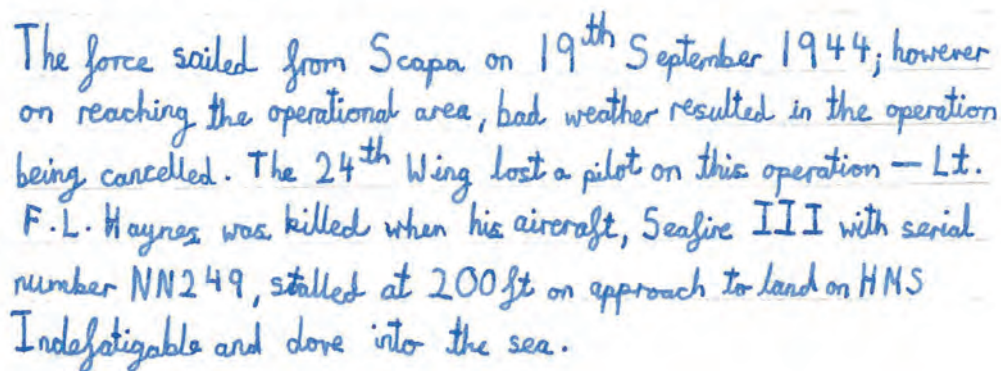 The force sailed from Scapa on 19th September 1944; however
on reaching the operational area, bad weather resulted in the operation
being cancelled. The 24th Wing lost a pilot on this operation — Lt.
F.L. Haynes was killed when his aircraft, Seafire III with serial
number NN249, stalled at 200ft on approach to land on HMS
Indefatigable and dove into the sea.